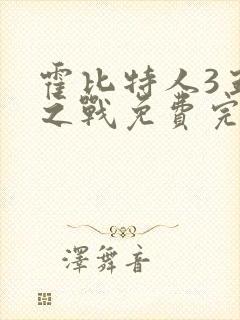 霍比特人3五
之戰免費完
澤舞音